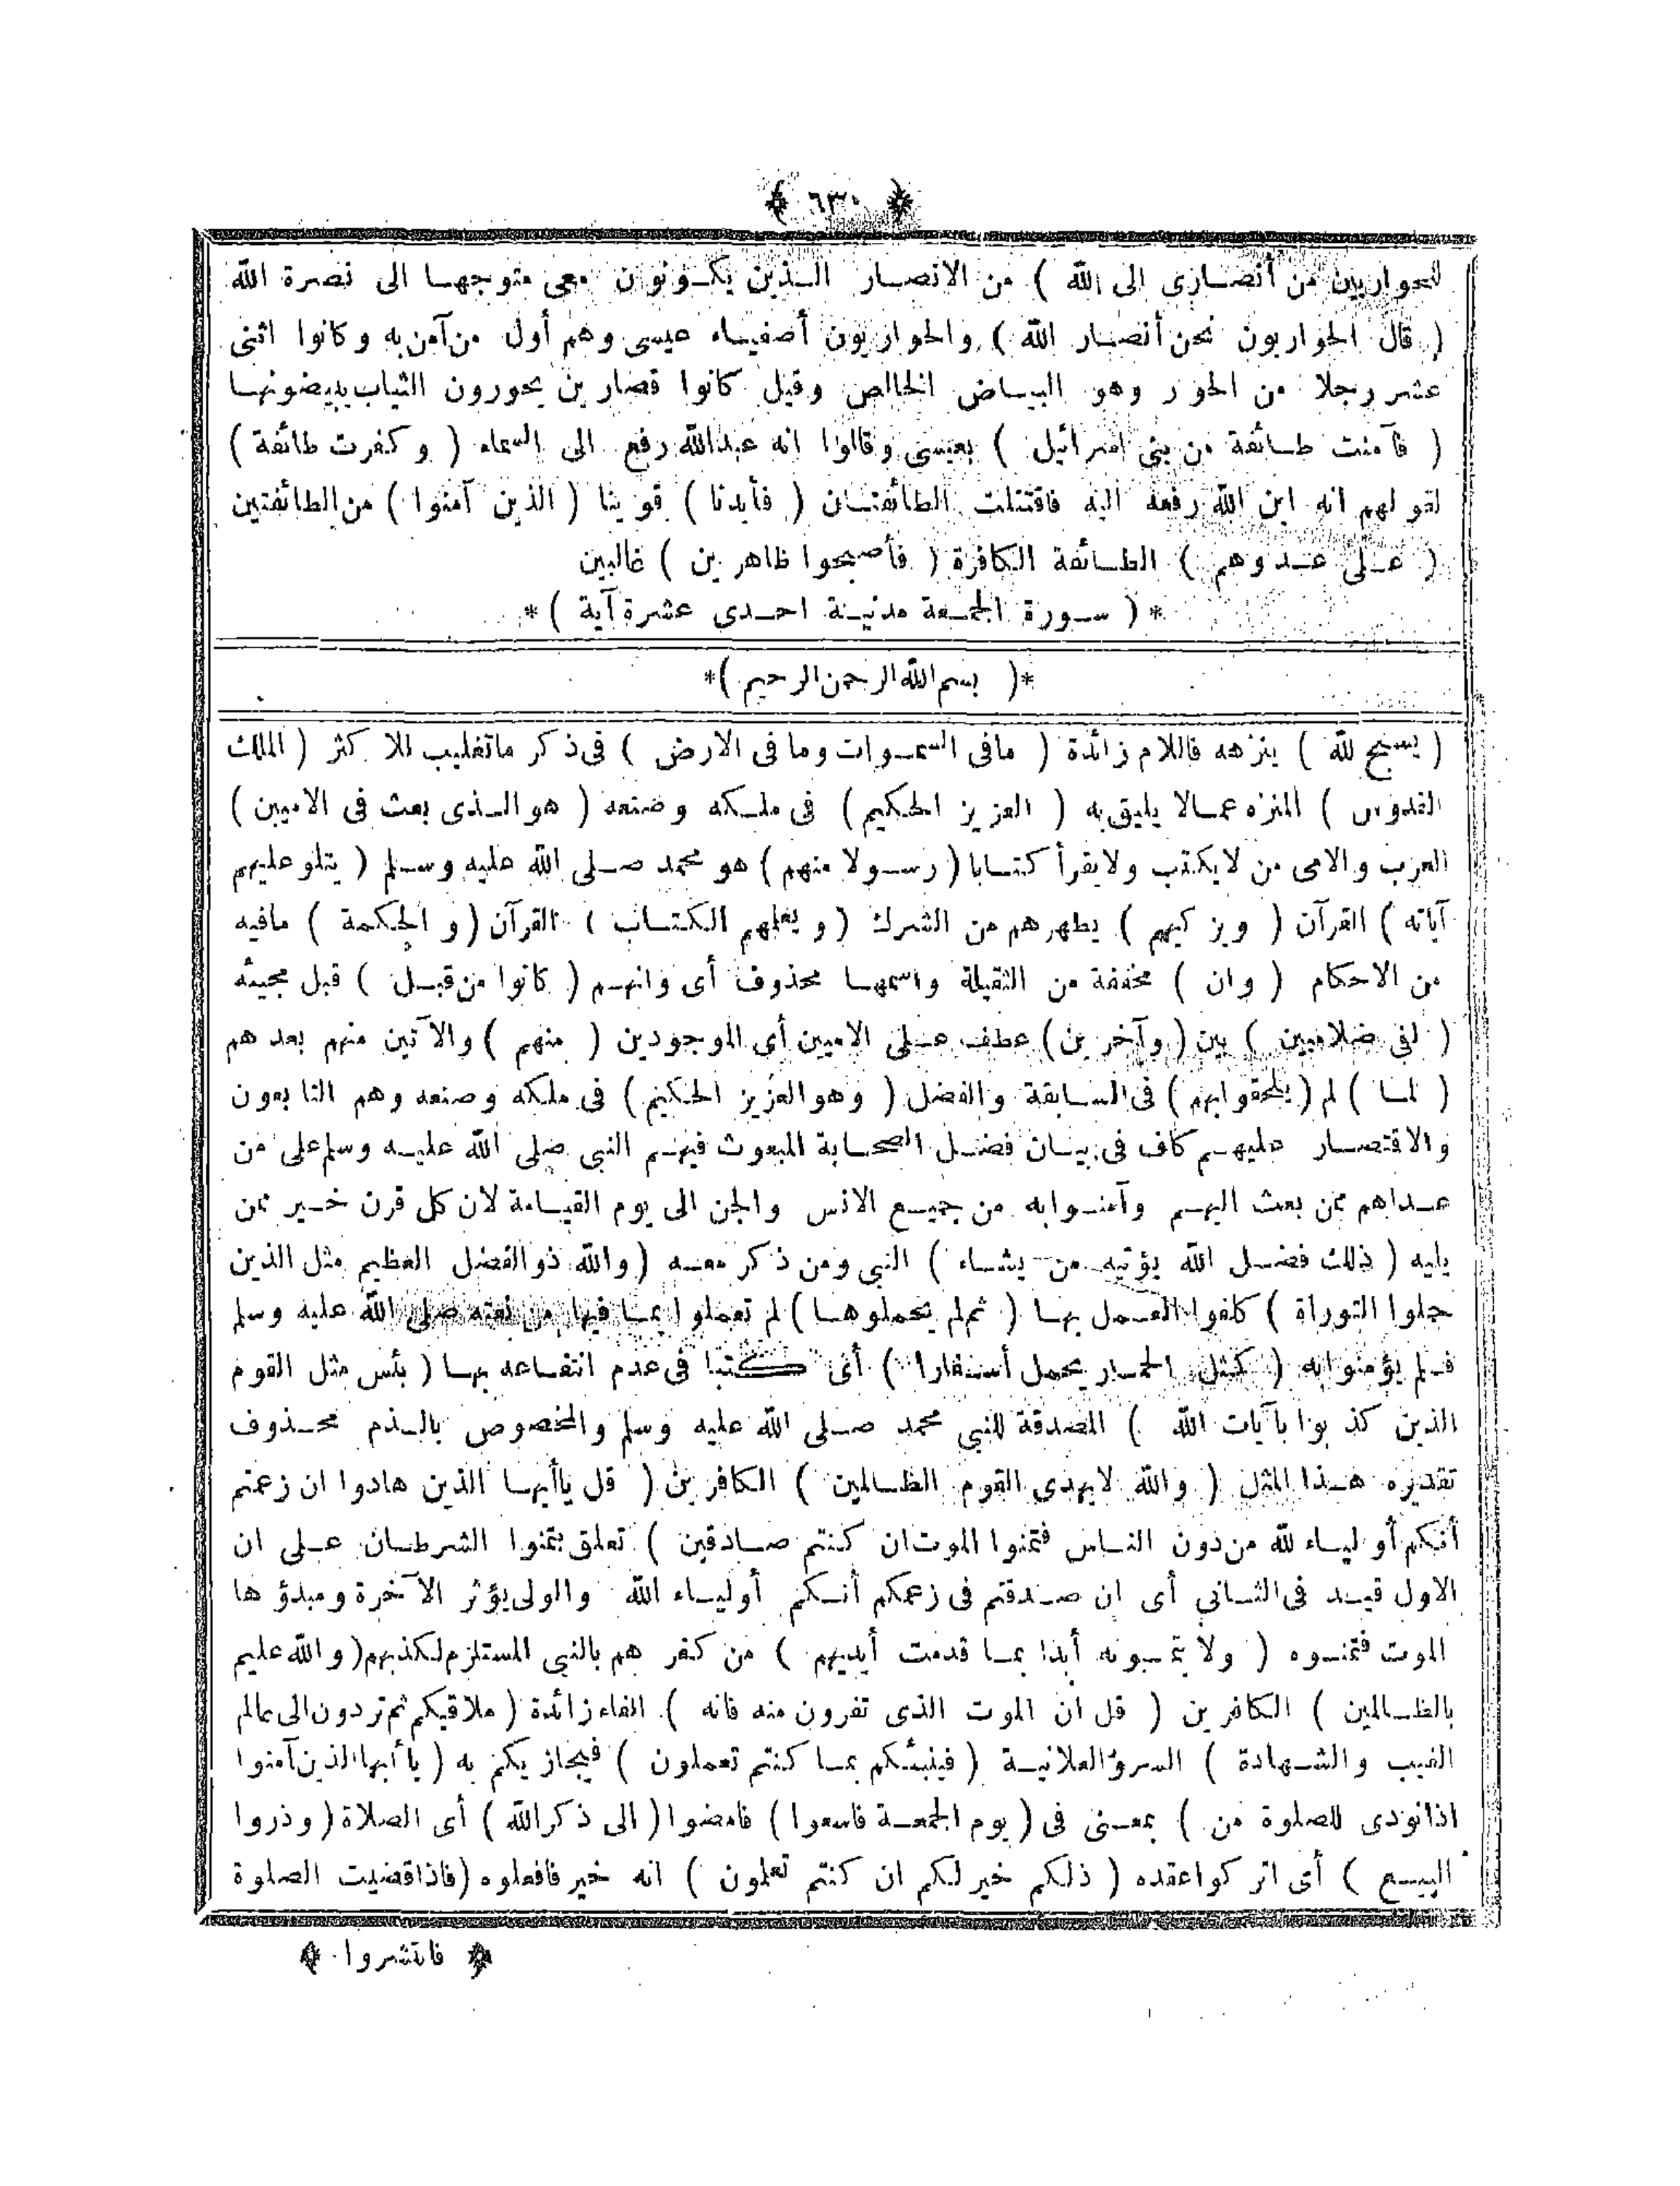 ﴿ ٦٣٠ ﴾
للحواريين من أنصارى الى الله ) من الانصار الذين يكونون معى متوجها الى نصرة الله
( قال الحواريون نحن أنصار الله ) والحواريون أصفياء عيسى وهم أول من آمن به وكانوا اثنى
عشر رجلا من الحور وهو البياض الخالص وقيل كانوا قصارين يحورون الثياب يبيضونها
( فآمنت طائفة من بنى اسرائيل ) بعيسى وقالوا انه عبدالله رفع الى السماء ( وكفرت طائفة )
لقولهم انه ابن الله رفعه اليه فاقتتلت الطائفتان ( فأيدنا ) قوينا ( الذين آمنوا ) من الطائفتين
( على عدوهم ) الطائفة الكافرة ( فأصبحوا ظاهرين ) غالبين
*( سورة الجمعة مدنية احدى عشرة آية )*
*( بسم الله الرحمن الرحيم )*
( يسبح لله ) ينزهه فاللام زائدة ( مافى السموات وما فى الارض ) فى ذكر ماتغليب للاكثر ( الملك
القدوس ) المنزه عمالا يليق به ( العزيز الحكيم ) فى ملكه وصنعه ( هو الذى بعث فى الاميين )
العرب والامى من لايكتب ولايقرأ كتابا ( رسولا منهم ) هو محمد صلى الله عليه وسلم ( يتلو عليهم
آياته ) القرآن ( ويزكيهم ) يطهرهم من الشرك ( ويعلمهم الكتاب ) القرآن ( والحكمة ) مافيه
من الاحكام ( وان ) مخففة من الثقيلة واسمها محذوف أى وانهم ( كانوا من قبل ) قبل مجيئه
( لفى ضلال مبين ) بين ( وآخرين ) عطف على الاميين أى الموجودين ( منهم ) والآتين منهم بعدهم
( لما ) لم ( يلحقوا بهم ) فى السابقة والفضل ( وهو العزيز الحكيم ) فى ملكه وصنعه وهم التابعون
والاقتصار عليهم كاف فى بيان فضل الصحابة المبعوث فيهم النبى صلى الله عليه وسلم على من
عداهم ممن بعث اليهم وآمنوا به من جميع الانس والجن الى يوم القيامة لان كل قرن خير ممن
يليه ( ذلك فضل الله يؤتيه من يشاء ) النبى ومن ذكر معه ( والله ذو الفضل العظيم مثل الذين
حملوا التوراة ) كلفوا العمل بها ( ثم لم يحملوها ) لم تعملوا بما فيها من نعته صلى الله عليه وسلم
فلم يؤمنوا به ( كمثل الحمار يحمل أسفارا ) أى كتبا فى عدم انتفاعه بها ( بئس مثل القوم
الذين كذبوا بآيات الله ) المصدقة للنبى محمد صلى الله عليه وسلم والمخصوص بالذم محذوف
تقديره هذا المثل ( والله لايهدى القوم الظالمين ) الكافرين ( قل ياأيها الذين هادوا ان زعمتم
أنكم أولياء لله من دون الناس فتمنوا الموت ان كنتم صادقين ) تعلق بتمنوا الشرطان على ان
الاول قيد فى الثانى أى ان صدقتم فى زعمكم أنكم أولياء الله والولى يؤثر الآخرة ومبدؤها
الموت فتمنوه ( ولا يتمنونه أبدا بما قدمت أيديهم ) من كفرهم بالنبى المستلزم لكذبهم ( والله عليم
بالظالمين ) الكافرين ( قل ان الموت الذى تفرون منه فانه ) الفاء زائدة ( ملاقيكم ثم تردون الى عالم
الغيب والشهادة ) السر والعلانية ( فينبئكم بما كنتم تعملون ) فيجازيكم به ( ياأيها الذين آمنوا
اذا نودى للصلوة من ) بمعنى فى ( يوم الجمعة فاسعوا ) فامضوا ( الى ذكر الله ) أى الصلاة ( وذروا
البيع ) أى اتركوا عقده ( ذلكم خير لكم ان كنتم تعلمون ) انه خير فافعلوه ( فاذا قضيت الصلوة
﴿ فانتشروا ﴾